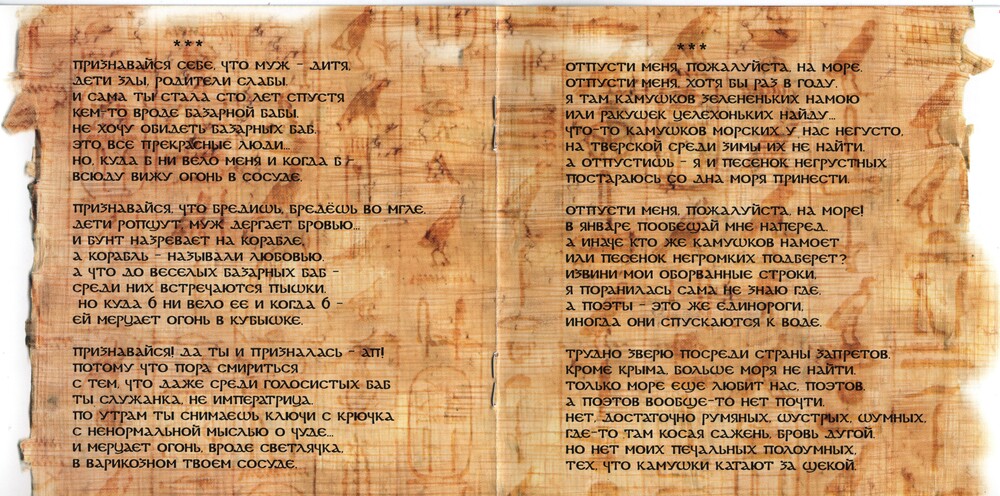 ***
ПРИЗНАВАЙСЯ СЕБЕ, ЧТО МУЖ - ДИТЯ,
ДЕТИ ЗЛЫ, РОДИТЕЛИ СЛАБЫ.
И САМА ТЫ СТАЛА СТО ЛЕТ СПУСТЯ
КЕМ-ТО ВРОДЕ БАЗАРНОЙ БАБЫ.
НЕ ХОЧУ ОБИДЕТЬ БАЗАРНЫХ БАБ,
ЭТО ВСЕ ПРЕКРАСНЫЕ ЛЮДИ...
НО, КУДА Б НИ ВЕЛО МЕНЯ И КОГДА Б -
ВСЮДУ ВИЖУ ОГОНЬ В СОСУДЕ.

ПРИЗНАВАЙСЯ, ЧТО БРЕДИШЬ, БРЕДЁШЬ ВО МГЛЕ,
ДЕТИ РОПЩУТ, МУЖ ДЕРГАЕТ БРОВЬЮ...
И БУНТ НАЗРЕВАЕТ НА КОРАБЛЕ,
А КОРАБЛЬ - НАЗЫВАЛИ ЛЮБОВЬЮ.
А ЧТО ДО ВЕСЕЛЫХ БАЗАРНЫХ БАБ -
СРЕДИ НИХ ВСТРЕЧАЮТСЯ ПЫШКИ,
НО КУДА Б НИ ВЕЛО ЕЕ И КОГДА Б -
ЕЙ МЕРЦАЕТ ОГОНЬ В КУБЫШКЕ.

ПРИЗНАВАЙСЯ! ДА ТЫ И ПРИЗНАЛАСЬ - АП!
ПОТОМУ ЧТО ПОРА СМИРИТЬСЯ
С ТЕМ, ЧТО ДАЖЕ СРЕДИ ГОЛОСИСТЫХ БАБ
ТЫ СЛУЖАНКА, НЕ ИМПЕРАТРИЦА.
ПО УТРАМ ТЫ СНИМАЕШЬ КЛЮЧИ С КРЮЧКА
С НЕНОРМАЛЬНОЙ МЫСЛЬЮ О ЧУДЕ...
И МЕРЦАЕТ ОГОНЬ, ВРОДЕ СВЕТЛЯЧКА,
В ВАРИКОЗНОМ ТВОЕМ СОСУДЕ.

***
ОТПУСТИ МЕНЯ, ПОЖАЛУЙСТА, НА МОРЕ.
ОТПУСТИ МЕНЯ, ХОТЯ БЫ РАЗ В ГОДУ.
Я ТАМ КАМУШКОВ ЗЕЛЕНЕНЬКИХ НАМОЮ
ИЛИ РАКУШЕК ЦЕЛЕХОНЬКИХ НАЙДУ...
ЧТО-ТО КАМУШКОВ МОРСКИХ У НАС НЕГУСТО,
НА ТВЕРСКОЙ СРЕДИ ЗИМЫ ИХ НЕ НАЙТИ,
А ОТПУСТИШЬ - Я И ПЕСЕНОК НЕГРУСТНЫХ
ПОСТАРАЮСЬ СО ДНА МОРЯ ПРИНЕСТИ.

ОТПУСТИ МЕНЯ, ПОЖАЛУЙСТА, НА МОРЕ!
В ЯНВАРЕ ПООБЕЩАЙ МНЕ НАПЕРЕД,
А ИНАЧЕ КТО ЖЕ КАМУШКОВ НАМОЕТ
ИЛИ ПЕСЕНОК НЕГРОМКИХ ПОДБЕРЕТ?
ИЗВИНИ МОИ ОБОРВАННЫЕ СТРОКИ,
Я ПОРАНИЛАСЬ САМА НЕ ЗНАЮ ГДЕ,
А ПОЭТЫ - ЭТО ЖЕ ЕДИНОРОГИ,
ИНОГДА ОНИ СПУСКАЮТСЯ К ВОДЕ.

ТРУДНО ЗВЕРЮ ПОСРЕДИ СТРАНЫ ЗАПРЕТОВ,
КРОМЕ КРЫМА, БОЛЬШЕ МОРЯ НЕ НАЙТИ,
ТОЛЬКО МОРЕ ЕЩЕ ЛЮБИТ НАС, ПОЭТОВ,
А ПОЭТОВ ВООБЩЕ-ТО НЕТ ПОЧТИ.
НЕТ, ДОСТАТОЧНО РУМЯНЫХ, ШУСТРЫХ, ШУМНЫХ,
ГДЕ-ТО ТАМ КОСАЯ САЖЕНЬ, БРОВЬ ДУГОЙ,
НО НЕТ МОИХ ПЕЧАЛЬНЫХ ПОЛОУМНЫХ,
ТЕХ, ЧТО КАМУШКИ КАТАЮТ ЗА ЩЕКОЙ.